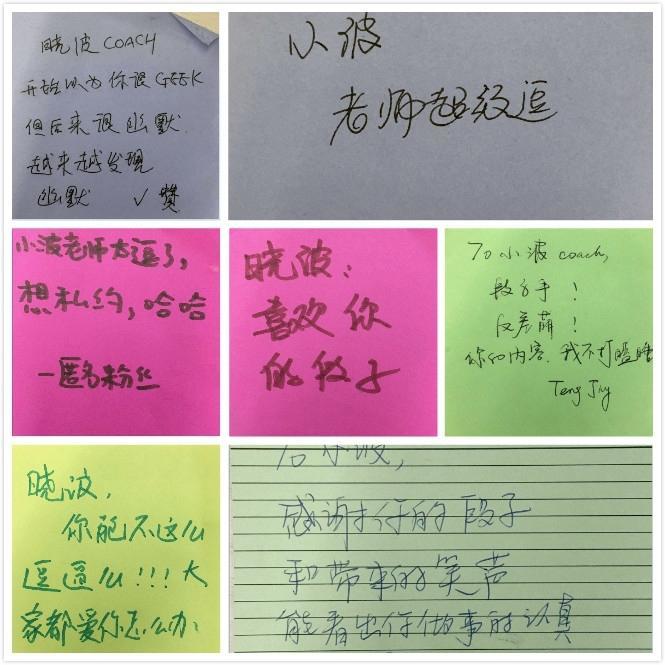 晓波 COACH
开始以为你很GEEK
但后来很幽默
越来越发现
幽默 ✓赞
小波
老师超级逗
小波老师太逗了，
想私约，哈哈
一匿名粉丝
晓波：
喜欢你
的段子
To 小波 coach,
段子手！
反差萌！
你的内容，我不打瞌睡
Teng Jay
晓波，
你能不这么
逗么!!!大
家都爱你怎么办
To 小波，
感谢你的段子
和带来的笑声
能看出你做事的认真